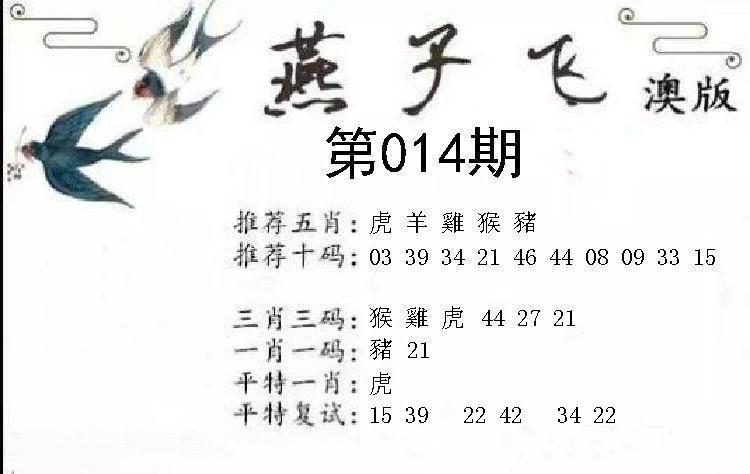 燕子飞 澳版
第014期
推荐五肖: 虎 羊 雞 猴 豬
推荐十码: 03 39 34 21 46 44 08 09 33 15
三肖三码: 猴 雞 虎 44 27 21
一肖一码: 豬 21
平特一肖: 虎
平特复试: 15 39 22 42 34 22